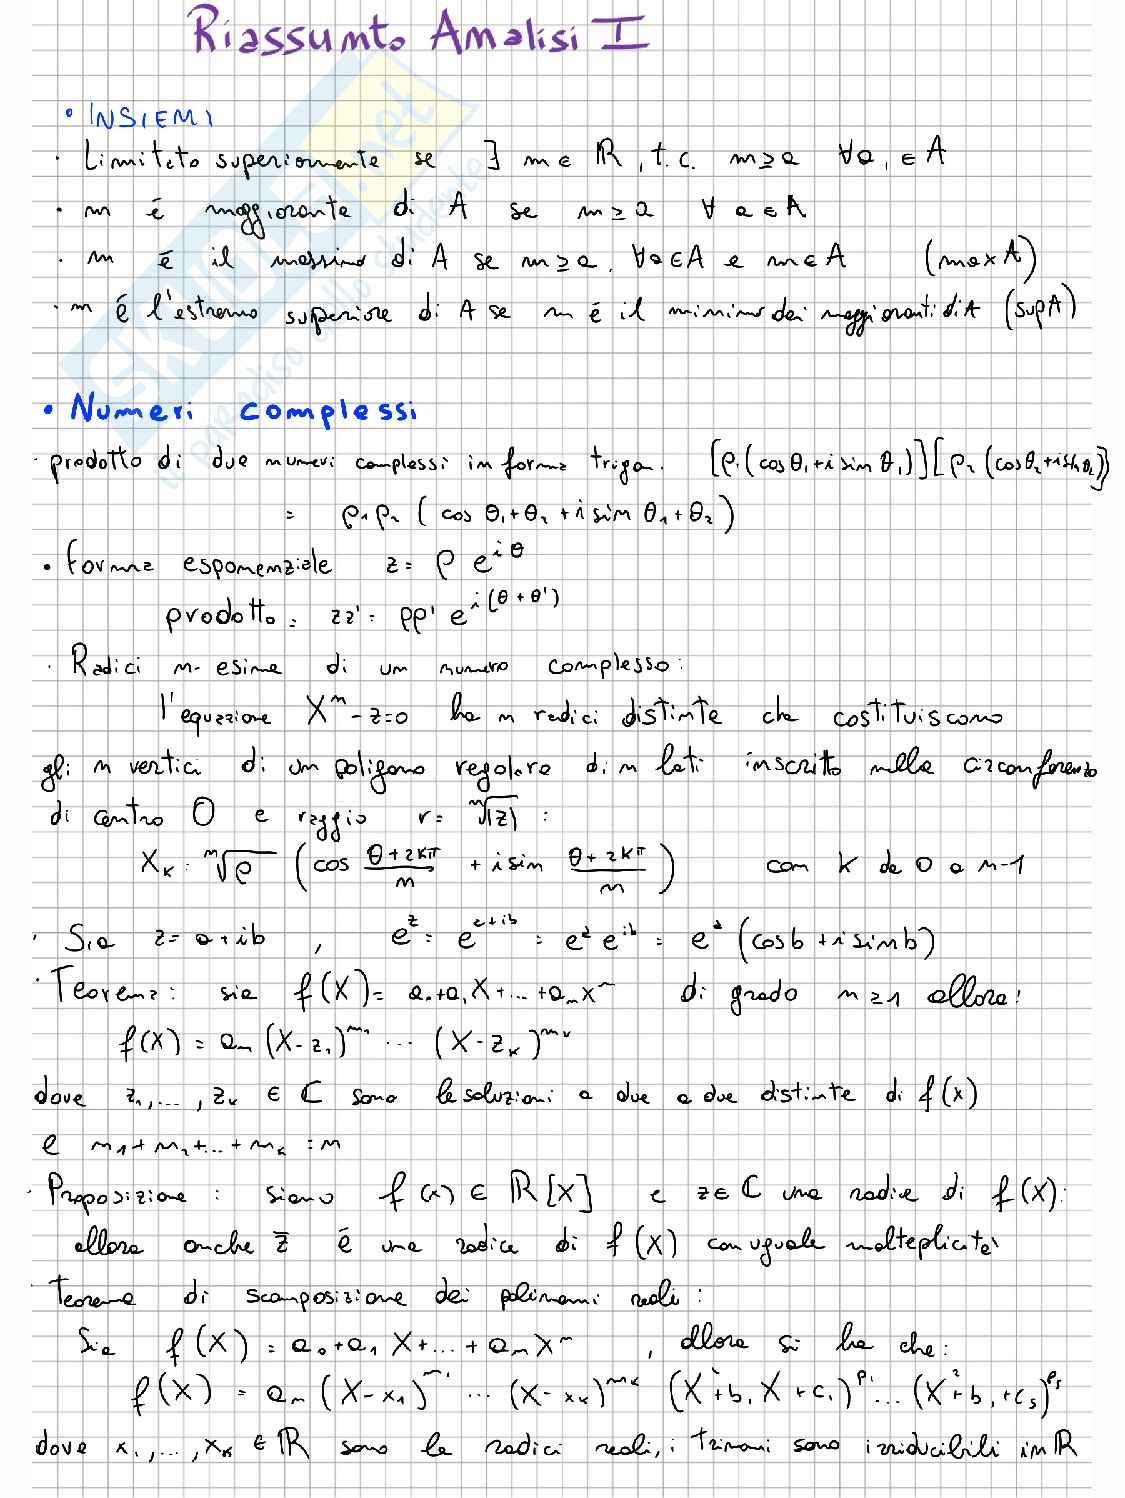 Riassunto Analisi I
• INSIEMI
· Limitato superiormente se ∃ m ∈ ℝ, t.c. m ≥ a ∀a, ∈ A
· m é maggiorante di A se m ≥ a ∀ a ∈ A
· m é il massimo di A se m ≥ a, ∀a ∈ A e m ∈ A (max A)
· m é l'estremo superiore di A se m é il minimo dei maggioranti di A (sup A)
• Numeri complessi
· prodotto di due numeri complessi in forma trigo. [ρ₁(cosθ₁+i sin θ₁)][ρ₂(cosθ₂+i sin θ₂)]
= ρ₁ρ₂ (cos θ₁+θ₂ + i sin θ₁+θ₂)
• Forma esponenziale z = ρ e^{iθ}
prodotto = zz' = ρρ' e^{i(θ+θ')}
· Radici n-esime di un numero complesso:
l'equazione Xⁿ - z = 0 ha n radici distinte che costituiscono
gli n vertici di un poligono regolare di n lati inscritto nella circonferenza
di centro O e raggio r = ⁿ√|z| :
X_k = ⁿ√ρ (cos (θ+2kπ)/n + i sin (θ+2kπ)/n) con k da 0 a n-1
· Sia z = a+ib , e^z = e^{a+ib} = e^a e^{ib} = e^a (cos b + i sin b)
· Teorema: sia f(X) = a₀+a₁X+...+aₙXⁿ di grado n ≥ 1 allora:
f(X) = aₙ (X-z₁)^{m₁} ... (X-z_k)^{m_k}
dove z₁,...,z_k ∈ ℂ sono le soluzioni a due a due distinte di f(x)
e m₁+m₂+...+m_k = n
· Proposizione : siano f(x) ∈ ℝ[X] e z ∈ ℂ una radice di f(X):
allora anche z̄ é una radice di f(X) con uguale molteplicità
· Teorema di scomposizione dei polinomi reali :
Sia f(X) = a₀+a₁X+...+aₙXⁿ , allora si ha che:
f(X) = aₙ (X-x₁)^{m₁} ... (X-x_k)^{m_k} (X²+b₁X+c₁)^{p₁} ... (X²+b₁+c_s)^{p_s}
dove x₁,...,x_k ∈ ℝ sono le radici reali, i trinomi sono irriducibili in ℝ
SKUOLA.net
il paradiso dello studente